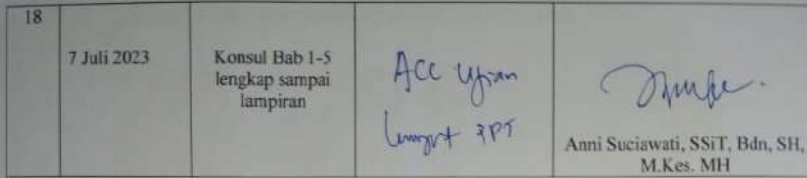 18
7 Juli 2023
Konsul Bab 1-5
lengkap sampai
lampiran
ACC Ujian
PPT
Anni Suciawati, SSiT, Bdn, SH,
M.Kes. MH